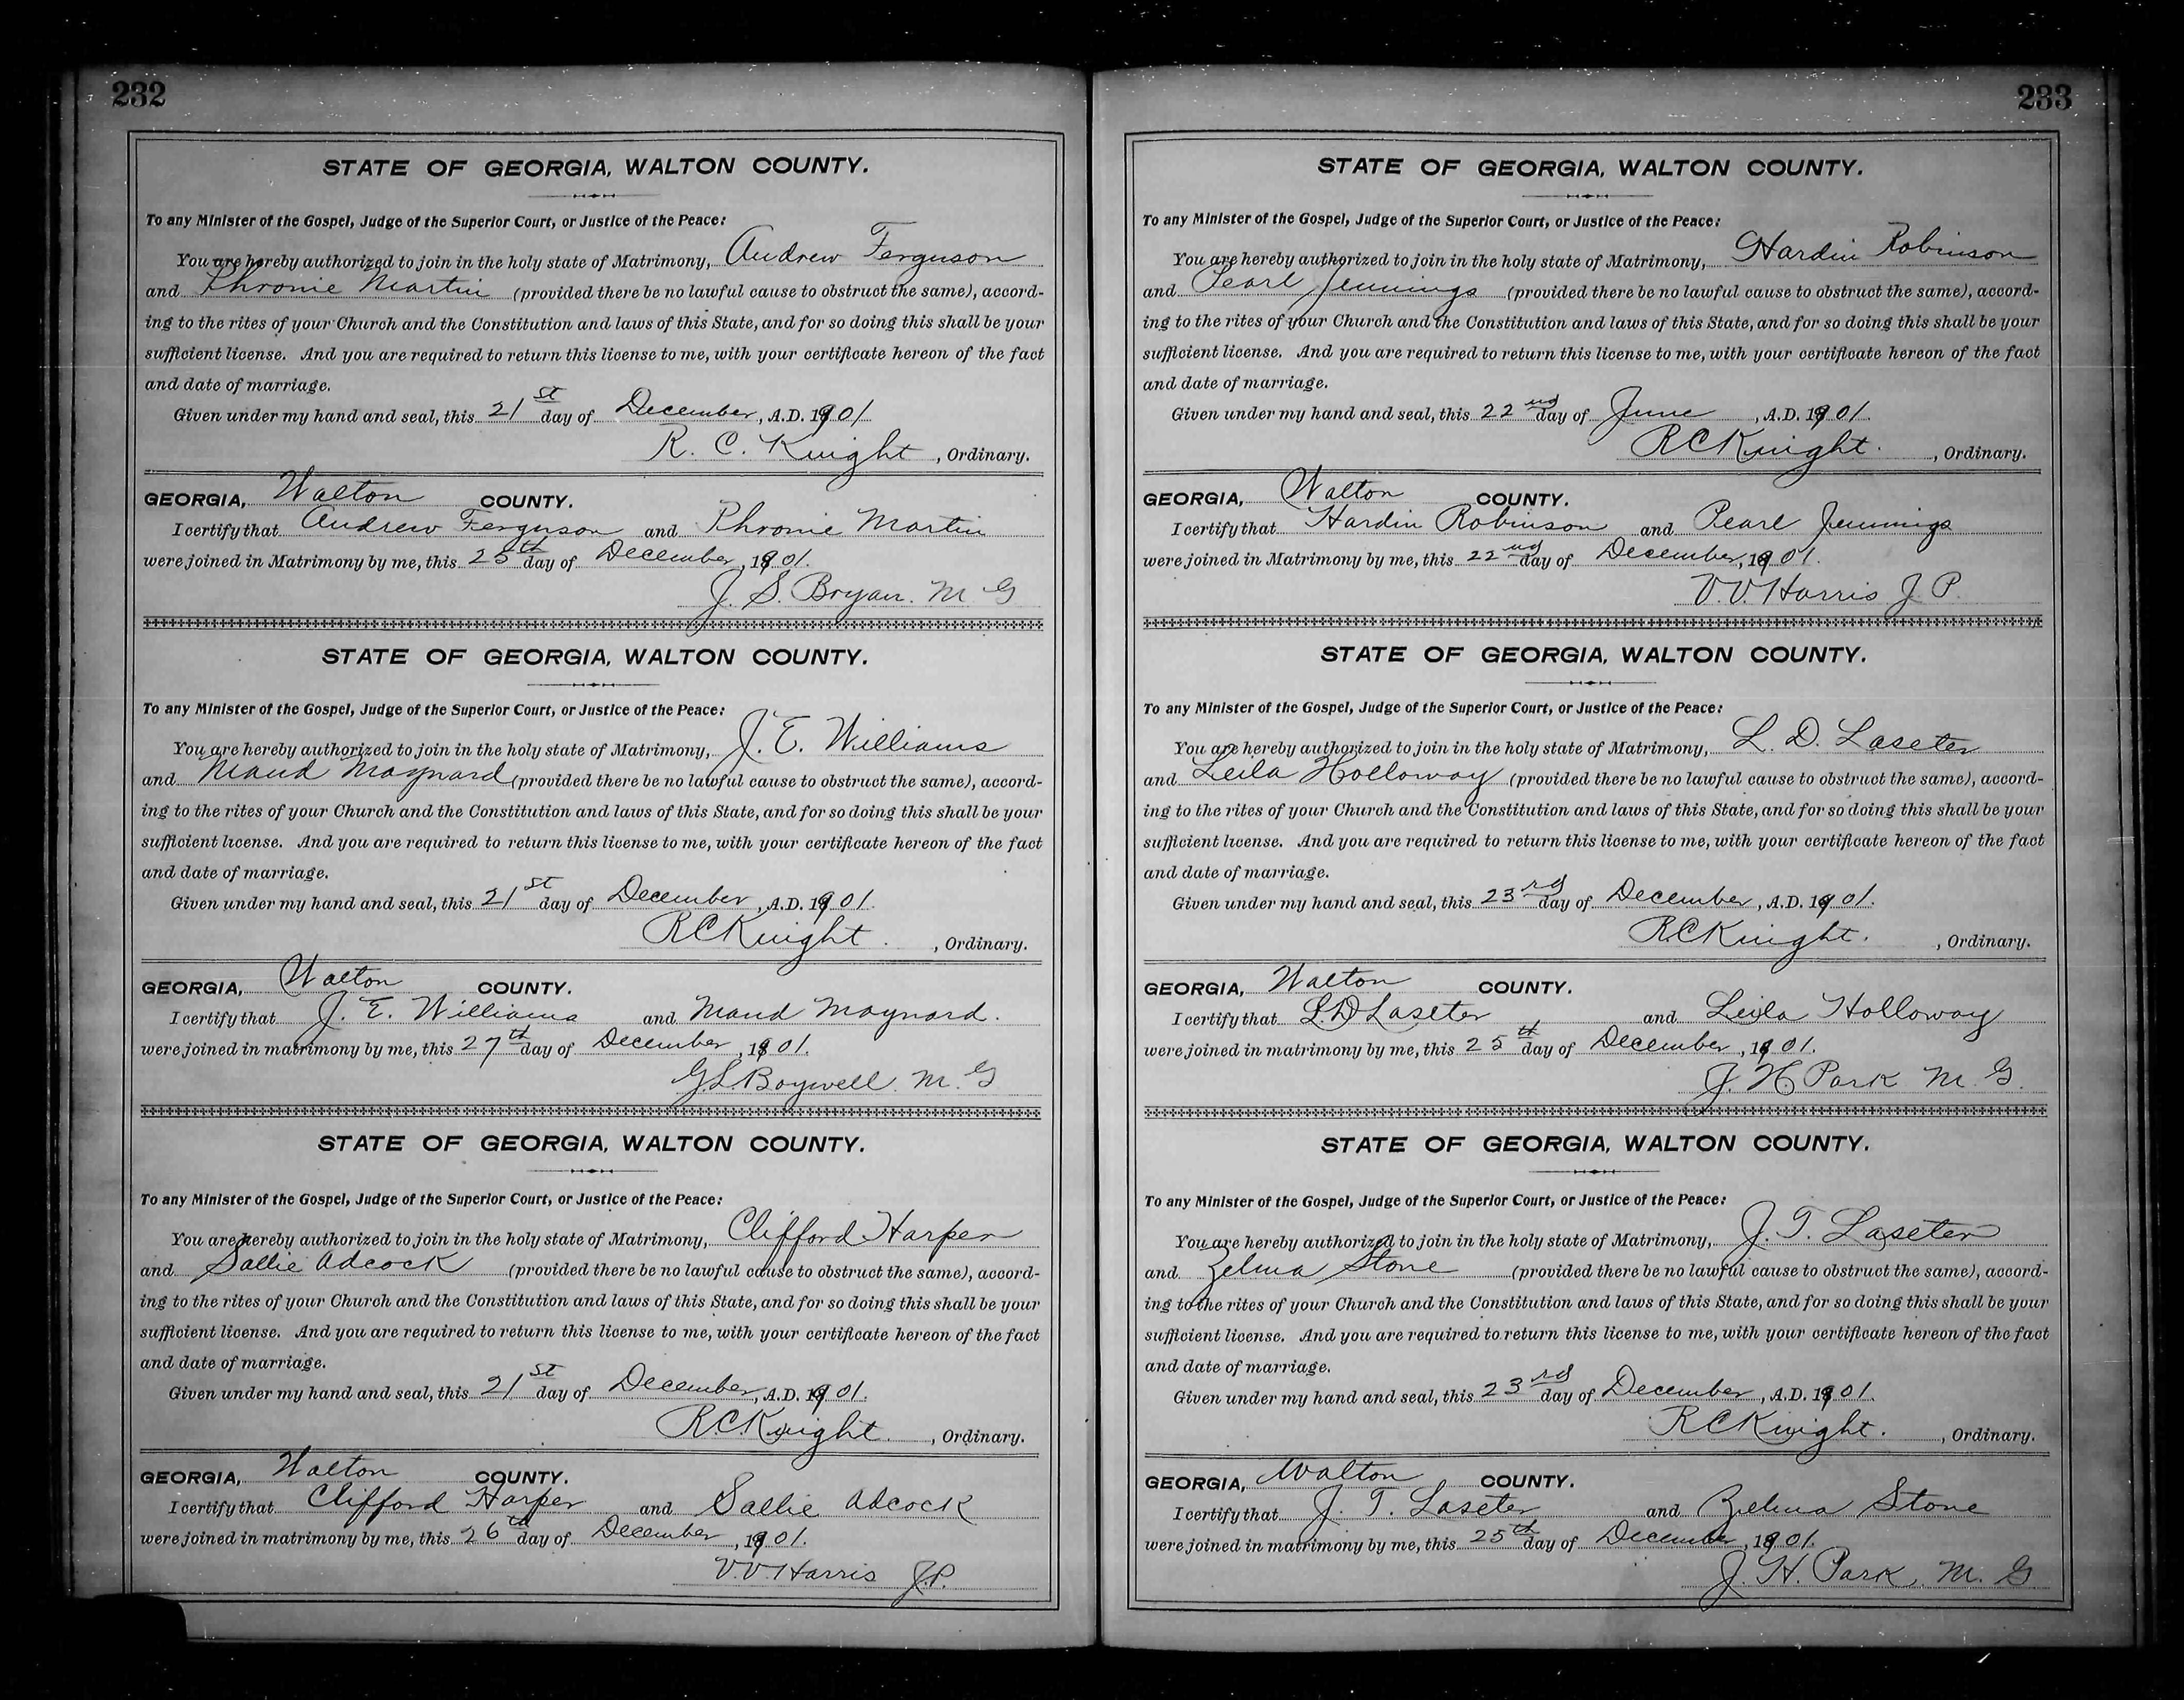 232
STATE OF GEORGIA, WALTON COUNTY.
To any Minister of the Gospel, Judge of the Superior Court, or Justice of the Peace:
You are hereby authorized to join in the holy state of Matrimony, Andrew Ferguson
and Phronie Martin (provided there be no lawful cause to obstruct the same), accord-
ing to the rites of your Church and the Constitution and laws of this State, and for so doing this shall be your
sufficient license. And you are required to return this license to me, with your certificate hereon of the fact
and date of marriage.
Given under my hand and seal, this 21st day of December, A.D. 1901.
R. C. Knight, Ordinary.
GEORGIA, Walton COUNTY.
I certify that Andrew Ferguson and Phronie Martin
were joined in Matrimony by me, this 25th day of December, 1901.
J. S. Bryan. M G
STATE OF GEORGIA, WALTON COUNTY.
To any Minister of the Gospel, Judge of the Superior Court, or Justice of the Peace:
You are hereby authorized to join in the holy state of Matrimony, J. E. Williams
and Maud Maynard (provided there be no lawful cause to obstruct the same), accord-
ing to the rites of your Church and the Constitution and laws of this State, and for so doing this shall be your
sufficient license. And you are required to return this license to me, with your certificate hereon of the fact
and date of marriage.
Given under my hand and seal, this 21st day of December, A.D. 1901.
R C Knight. , Ordinary.
GEORGIA, Walton COUNTY.
I certify that J. E. Williams and Maud Maynard.
were joined in matrimony by me, this 27th day of December, 1901.
G. L. M. G
STATE OF GEORGIA, WALTON COUNTY.
To any Minister of the Gospel, Judge of the Superior Court, or Justice of the Peace:
You are hereby authorized to join in the holy state of Matrimony, Clifford Harper
and Sallie Adcock (provided there be no lawful cause to obstruct the same), accord-
ing to the rites of your Church and the Constitution and laws of this State, and for so doing this shall be your
sufficient license. And you are required to return this license to me, with your certificate hereon of the fact
and date of marriage.
Given under my hand and seal, this 21st day of December, A.D. 1901.
R.C. Knight. , Ordinary.
GEORGIA, Walton COUNTY.
I certify that Clifford Harper and Sallie Adcock
were joined in matrimony by me, this 26th day of December, 1901.
V. V. Harris J.P.
233
STATE OF GEORGIA, WALTON COUNTY.
To any Minister of the Gospel, Judge of the Superior Court, or Justice of the Peace:
You are hereby authorized to join in the holy state of Matrimony, Hardin Robinson
and Pearl Jennings (provided there be no lawful cause to obstruct the same), accord-
ing to the rites of your Church and the Constitution and laws of this State, and for so doing this shall be your
sufficient license. And you are required to return this license to me, with your certificate hereon of the fact
and date of marriage.
Given under my hand and seal, this 22nd day of June, A.D. 1901.
R C Knight. , Ordinary.
GEORGIA, Walton COUNTY.
I certify that Hardin Robinson and Pearl Jennings
were joined in Matrimony by me, this 22nd day of December, 1901.
V. V. Harris J. P.
STATE OF GEORGIA, WALTON COUNTY.
To any Minister of the Gospel, Judge of the Superior Court, or Justice of the Peace:
You are hereby authorized to join in the holy state of Matrimony, L. D. Laseter
and Leila Holloway (provided there be no lawful cause to obstruct the same), accord-
ing to the rites of your Church and the Constitution and laws of this State, and for so doing this shall be your
sufficient license. And you are required to return this license to me, with your certificate hereon of the fact
and date of marriage.
Given under my hand and seal, this 23rd day of December, A.D. 1901.
R C Knight. , Ordinary.
GEORGIA, Walton COUNTY.
I certify that L. D Laseter and Leila Holloway
were joined in matrimony by me, this 25th day of December, 1901.
J. H Park M. G.
STATE OF GEORGIA, WALTON COUNTY.
To any Minister of the Gospel, Judge of the Superior Court, or Justice of the Peace:
You are hereby authorized to join in the holy state of Matrimony, J. T. Laseter
and Zelma Stone (provided there be no lawful cause to obstruct the same), accord-
ing to the rites of your Church and the Constitution and laws of this State, and for so doing this shall be your
sufficient license. And you are required to return this license to me, with your certificate hereon of the fact
and date of marriage.
Given under my hand and seal, this 23rd day of December, A.D. 1901.
R C Knight. , Ordinary.
GEORGIA, Walton COUNTY.
I certify that J. T. Laseter and Zelma Stone
were joined in matrimony by me, this 25th day of December, 1901.
J. H. Park, M. G